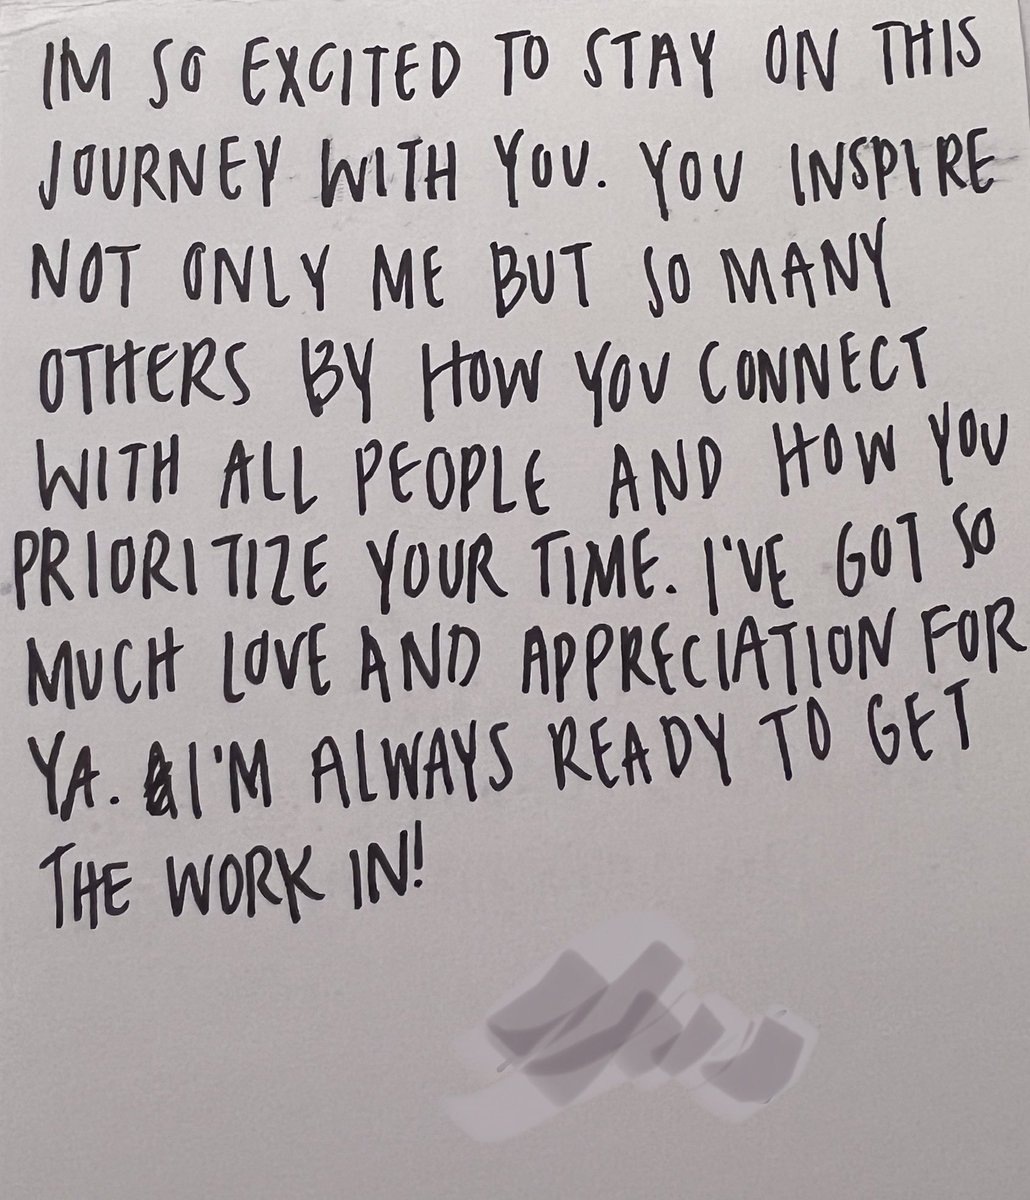 IM SO EXCITED TO STAY ON THIS
JOURNEY WITH YOU. YOU INSPIRE
NOT ONLY ME BUT SO MANY
OTHERS BY HOW YOU CONNECT
WITH ALL PEOPLE AND HOW YOU
PRIORITIZE YOUR TIME. I'VE GOT SO
MUCH LOVE AND APPRECIATION FOR
YA. I'M ALWAYS READY TO GET
THE WORK IN!